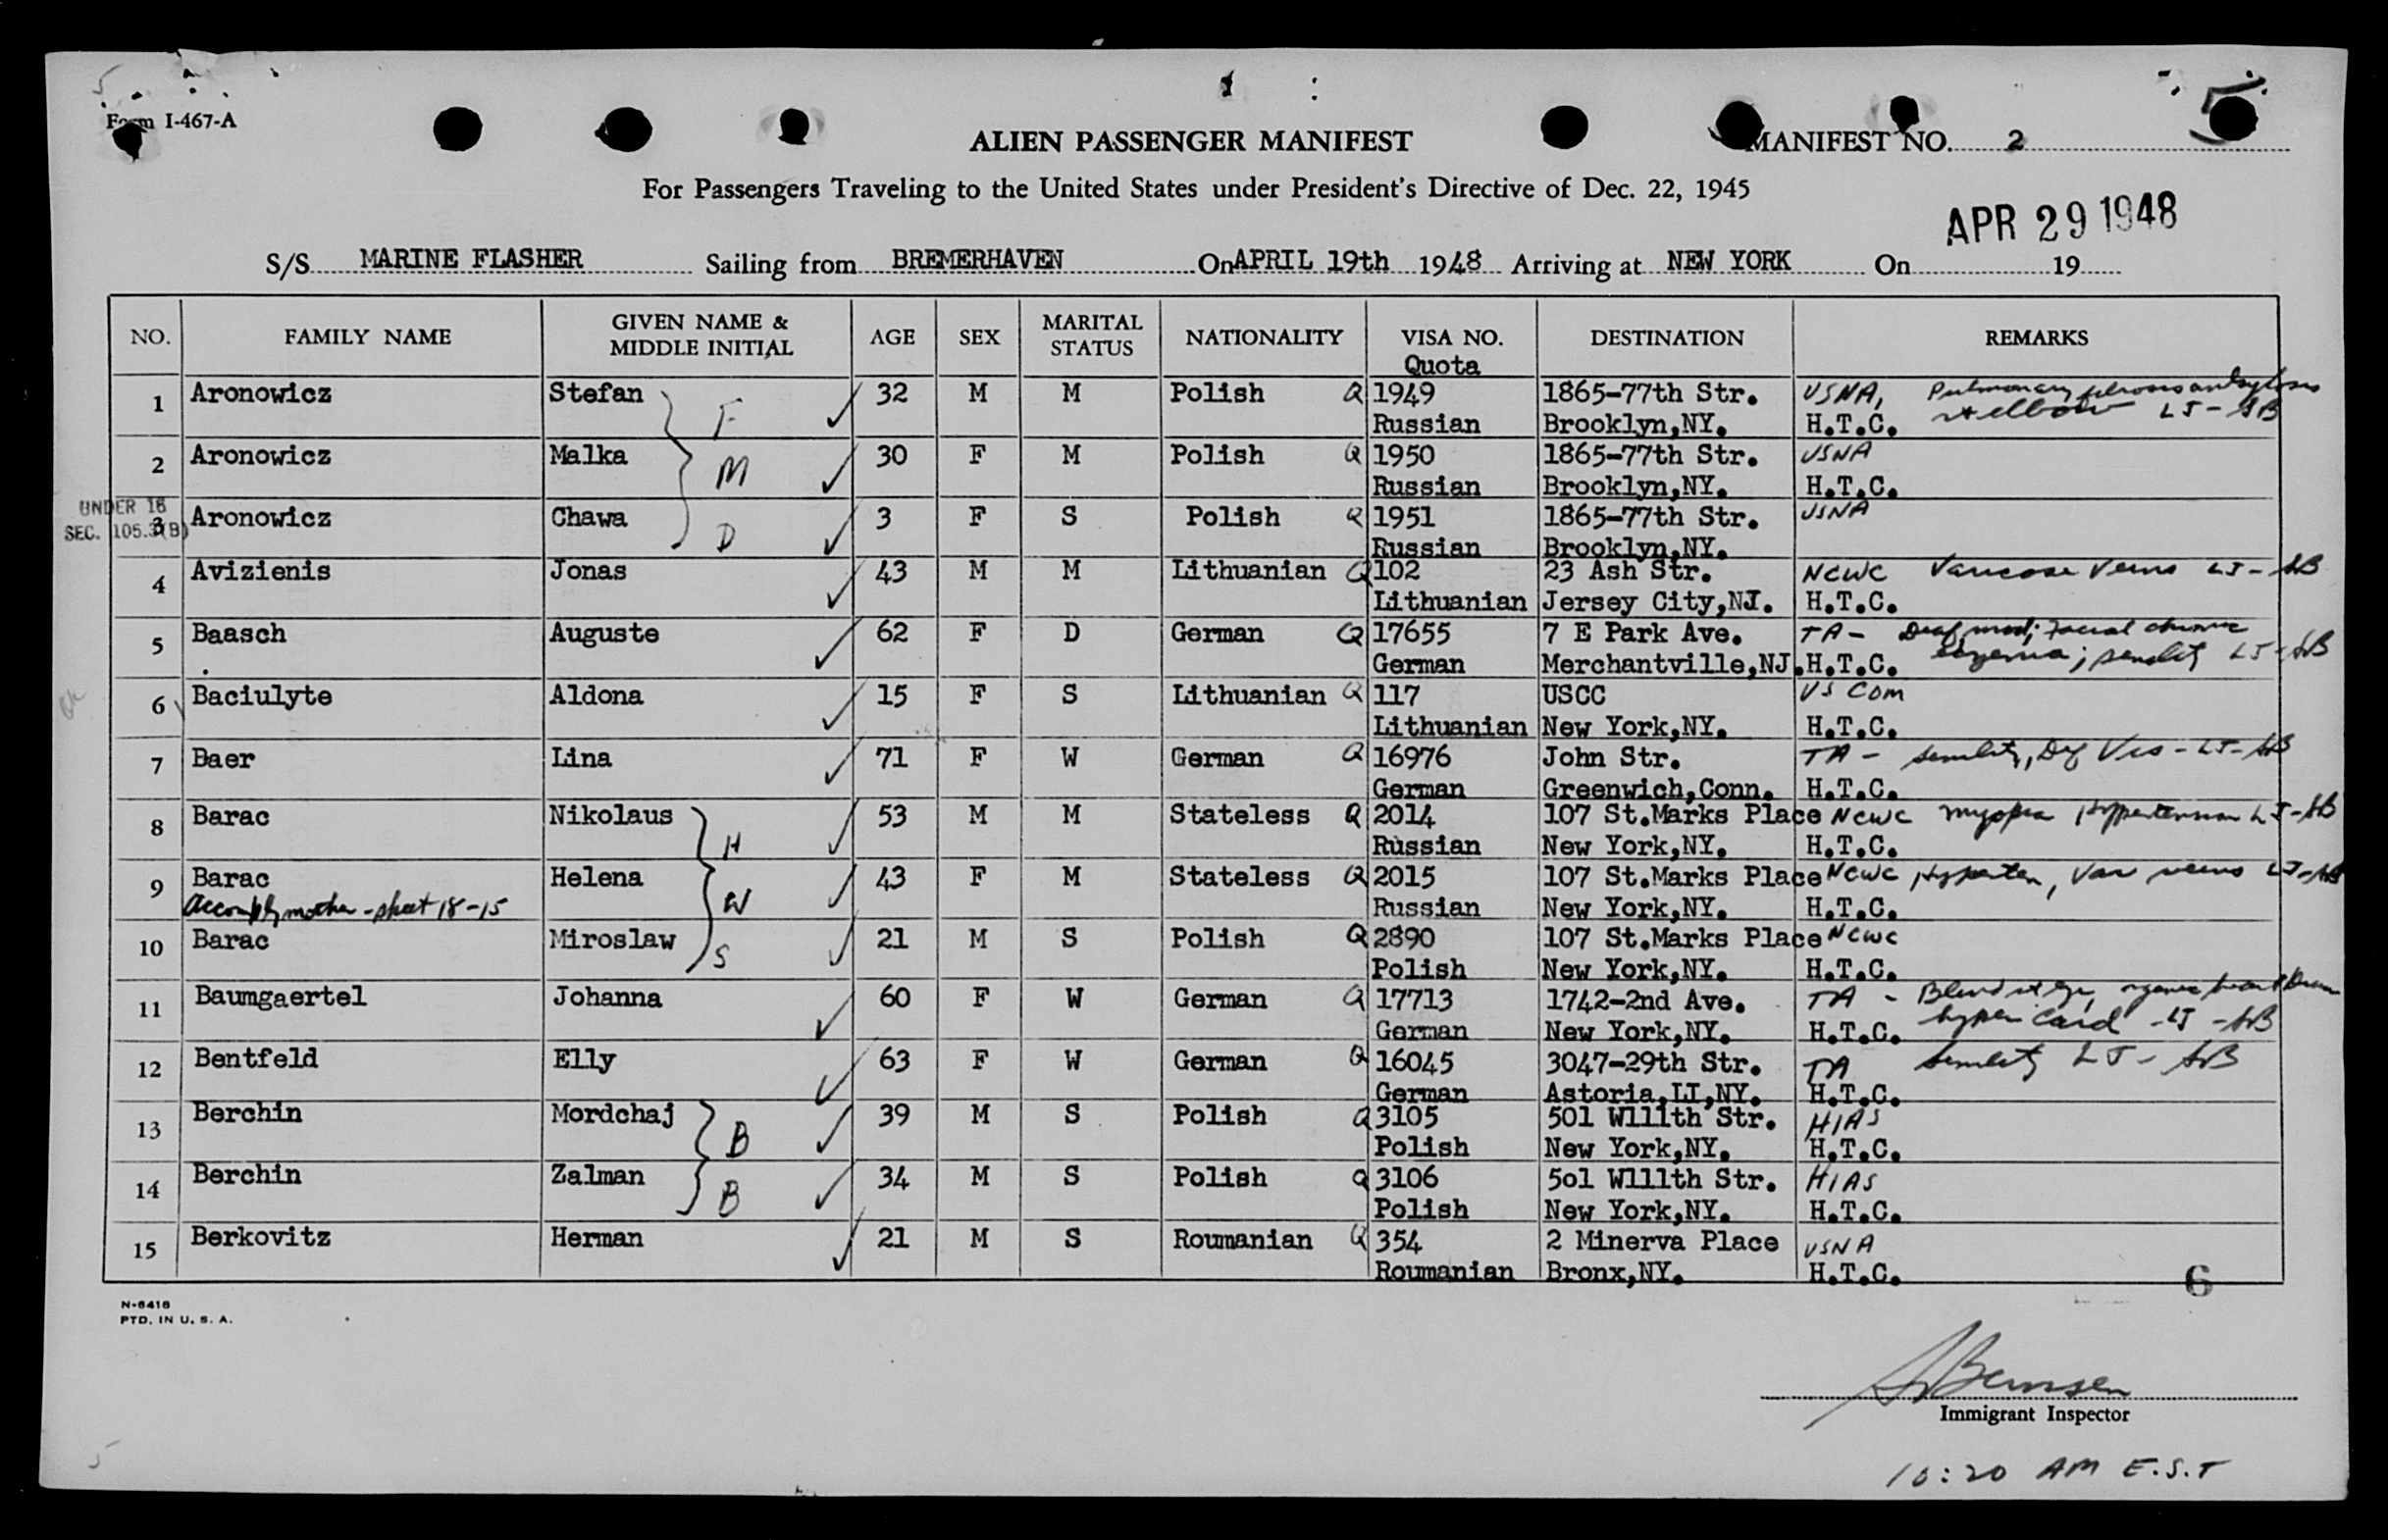 Form I-467-A
ALIEN PASSENGER MANIFEST
MANIFEST NO. 2
5
For Passengers Traveling to the United States under President's Directive of Dec. 22, 1945
APR 29 1948
S/S MARINE FLASHER Sailing from BREMERHAVEN On APRIL 19th 1948 Arriving at NEW YORK On 19
NO. FAMILY NAME GIVEN NAME & MIDDLE INITIAL AGE SEX MARITAL STATUS NATIONALITY VISA NO. Quota DESTINATION REMARKS
1 Aronowicz Stefan F ✓ 32 M M Polish Q 1949 1865-77th Str. USNA, Pulmonary
Russian Brooklyn,NY. H.T.C. rt elbow LJ - AB
2 Aronowicz Malka M ✓ 30 F M Polish Q 1950 1865-77th Str. USNA
Russian Brooklyn,NY. H.T.C.
UNDER 16
SEC. 105.3(B)
3 Aronowicz Chawa D ✓ 3 F S Polish Q 1951 1865-77th Str. USNA
Russian Brooklyn,NY.
4 Avizienis Jonas ✓ 43 M M Lithuanian Q 102 23 Ash Str. NCWC Varicose Veins LJ - AB
Lithuanian Jersey City,NJ. H.T.C.
5 Baasch Auguste ✓ 62 F D German Q 17655 7 E Park Ave. TA - Deaf facial chronic
German Merchantville,NJ. H.T.C. eczema; senility LJ - AB
6 Baciulyte Aldona ✓ 15 F S Lithuanian Q 117 USCC US COM
Lithuanian New York,NY. H.T.C.
7 Baer Lina ✓ 71 F W German Q 16976 John Str. TA - senility, Def Vis - LJ - AB
German Greenwich,Conn. H.T.C.
8 Barac Nikolaus H ✓ 53 M M Stateless Q 2014 107 St.Marks Place NCWC myopia Hypertension LJ - AB
Russian New York,NY. H.T.C.
9 Barac Helena W ✓ 43 F M Stateless Q 2015 107 St.Marks Place NCWC Hyperten, Var veins LJ - AB
accomp by mother - sheet 18-15 Russian New York,NY. H.T.C.
10 Barac Miroslaw S ✓ 21 M S Polish Q 2890 107 St.Marks Place NCWC
Polish New York,NY. H.T.C.
11 Baumgaertel Johanna ✓ 60 F W German Q 17713 1742-2nd Ave. TA - Blind rt eye, organic heart
German New York,NY. H.T.C. hyper Card - LJ - AB
12 Bentfeld Elly ✓ 63 F W German Q 16045 3047-29th Str. TA Senility LJ - AB
German Astoria,LI,NY. H.T.C.
13 Berchin Mordchaj B ✓ 39 M S Polish Q 3105 501 W111th Str. HIAS
Polish New York,NY. H.T.C.
14 Berchin Zalman B ✓ 34 M S Polish Q 3106 5o1 W111th Str. HIAS
Polish New York,NY. H.T.C.
15 Berkovitz Herman ✓ 21 M S Roumanian Q 354 2 Minerva Place USNA
Roumanian Bronx,NY. H.T.C.
6
N-6416
PTD. IN U. S. A.
Immigrant Inspector
10:20 AM E.S.T